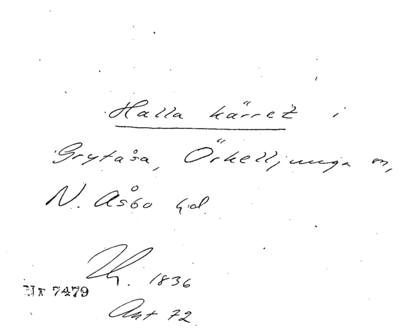 Halla kärret i
Grytåsa, Örkelljunga sn,
N. Åsbo hd.
1836
Nr 7479
Ant 72